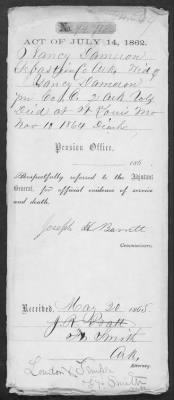 No.
ACT OF JULY 14, 1862.
Nancy Dameron
Sebastian Co Ark. Wid of
Dameron
Co. C. 2 Ark. Vols
Died at St Louis Mo
Nov 19 1864
Pension Office,
186 .
Respectfully referred to the Adjutant
General, for official evidence of service
and death.
Joseph H Barrett
Commissioner.
Received, May 20 1865
J. R.
Ft Smith
Ark,
Attorney.
Ft Smith